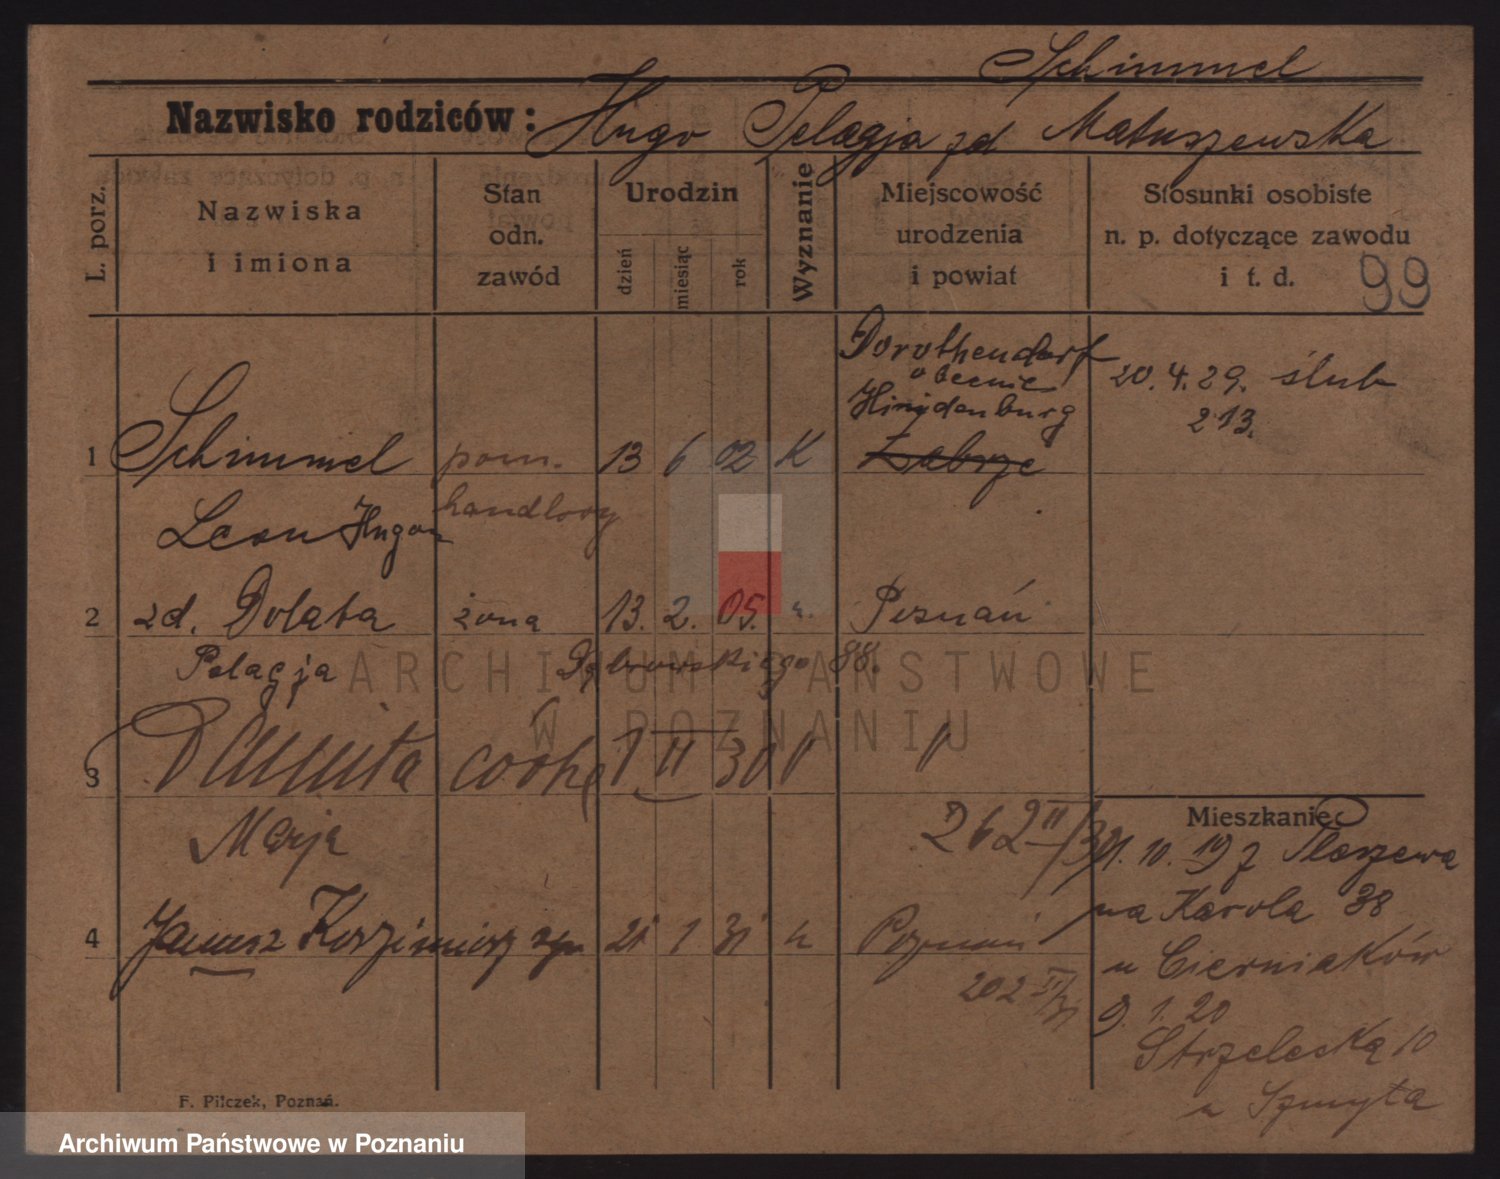 Schimmel
Nazwisko rodziców: Hugo Pelagja zd Matuszewska
L. porz.
Nazwiska
i imiona
Stan
odn.
zawód
Urodzin
dzień
miesiąc
rok
Wyznanie
Miejscowość
urodzenia
i powiat
Stosunki osobiste
n. p. dotyczące zawodu
i t. d.
99
Dorothendorf
obecnie
Hindenburg
20.4.29. ślub
213.
1 Schimmel pom. 13 6 02 K Zabrze
Leon Hugon handlowy
2 zd. Dolata żona 13. 2. 05. Poznań
Pelagja Dąbrowskiego 88.
3 Danuta córka 1 II 30
Marja
262 II/30
Mieszkaniec
21. 10. 19 z Pleszewa
na Karola 38
u Cierniaków
4 Janusz Kazimierz syn 21 1 31 k Poznań
202 II/31
9. 1. 20
Strzelecka 10
u Szmyta
F. Pilczek, Poznań.
ARCHIWUM PAŃSTWOWE
W POZNANIU
Archiwum Państwowe w Poznaniu